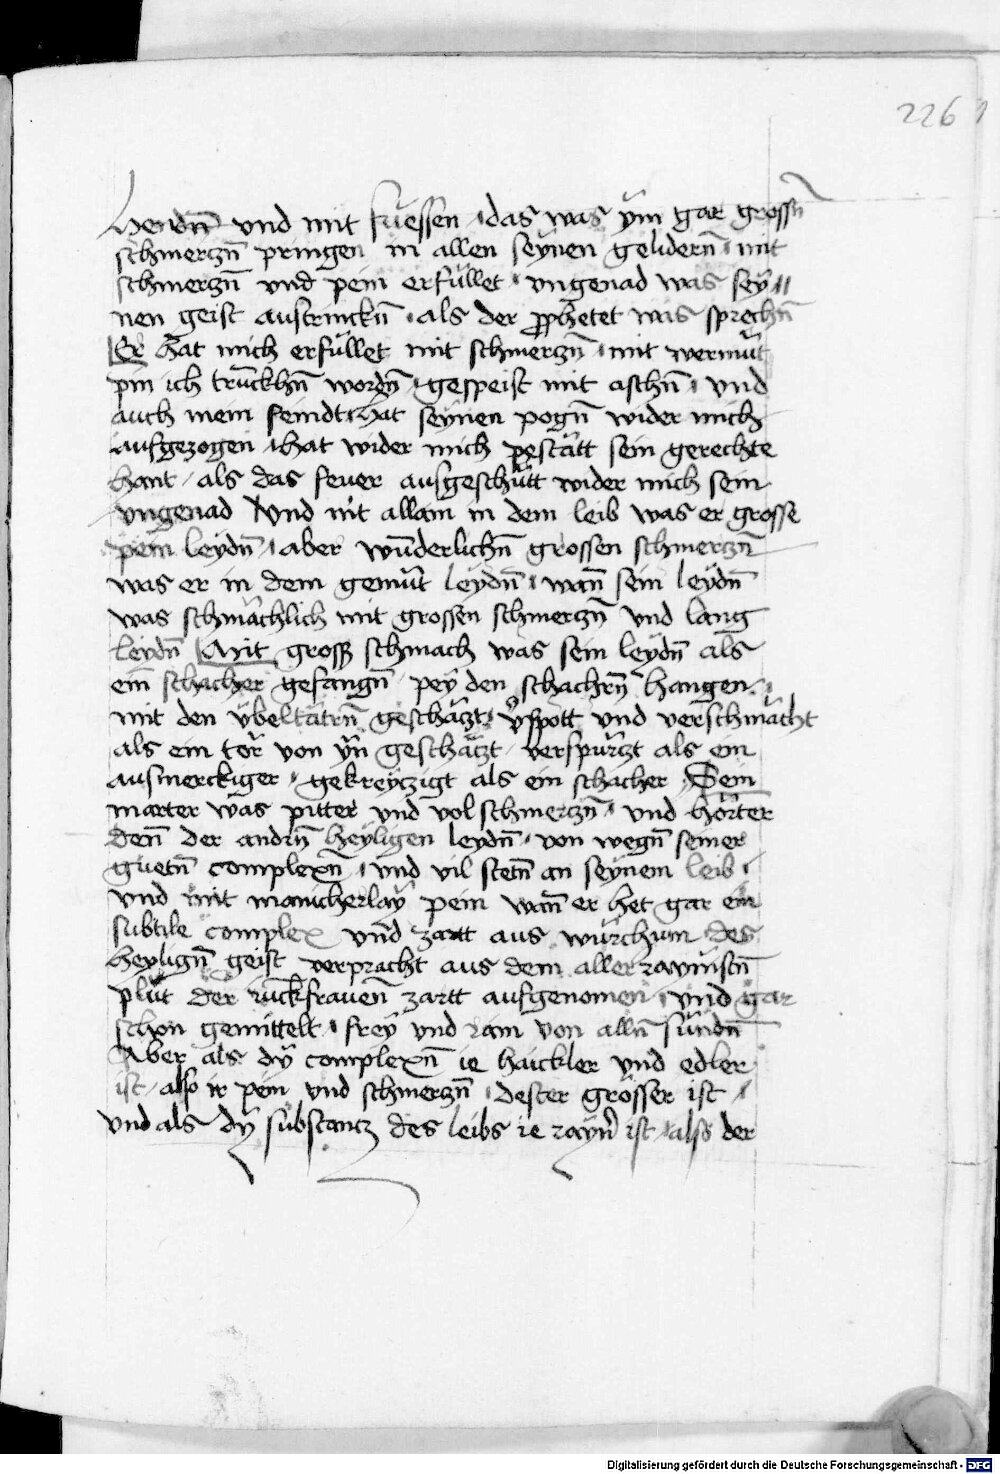 226
Hendn̄ vnd mit fuessen / das was ÿm gar grossn̄
schmerczn̄ pringen in allen seÿnen gelidern̄ / mit
schmerczn̄ vnd pein erfüllet / vngenad was seÿ //
nen geist austrinckn̄ / als der prophetet was sprechn̄
Er hat mich erfüllet mit schmerczn̄ / mit wermut̄
pin ich trūckhn̄ wordn̄ / gespeist mit aschn̄ / vnd
auch mein feindt hat seÿnen pogn̄ wider mich
aufgezogen / hat wider mich pestätt sein gerechte
hant / als das feuer ausgeschütt wider mich sein
vngenad Vnd nit allain in dem leib was er grosse
pein leÿdn̄ / aber wūderlichn̄ grossen schmerczn̄
was er in dem gemüt leÿdn̄ / wan̄ sein leÿdn̄
was schmächlich mit grossen schmerczn̄ vnd lang
leidn̄ Mit gross schmach was sein leÿdn̄ als
ein̄ schacher gefangn̄ / peÿ den schachrn̄ hangen /
mit den übeltätrn̄ geschäczt / v̓spott vnd verschmächt
als ein tor von ÿn̄ geschäczt / verspürczt als ein
ausmerckiger / gekreÿczigt als ein schacher / Sein
marter was pitter vnd vol schmerczn̄ / vnd hörter
den̄ der andrn̄ heÿligen leÿdn̄ / von wegn̄ seiner
guetn̄ complexn̄ / vnd vil stetn̄ an seÿnem leib /
vnd mit manicherlaÿ pein wan̄ er het gar ein
subtile complex vnd zartt aus würchum des
heÿlign̄ geist verpracht aus dem aller raÿnistn̄
plüt der iūckfrauen̄ zartt aufgenomen / vnd gar
schon gemittelt / freÿ vnd rain von alln̄ sündn̄
Aber als dÿ complexn̄ ie haickler vnd edler
ist / also ir pein vnd schmerczn̄ / dester grösser ist /
vnd als dÿ substancz des leibs ie raÿn̓ ist / alss der
Digitalisierung gefördert durch die Deutsche Forschungsgemeinschaft - DFG